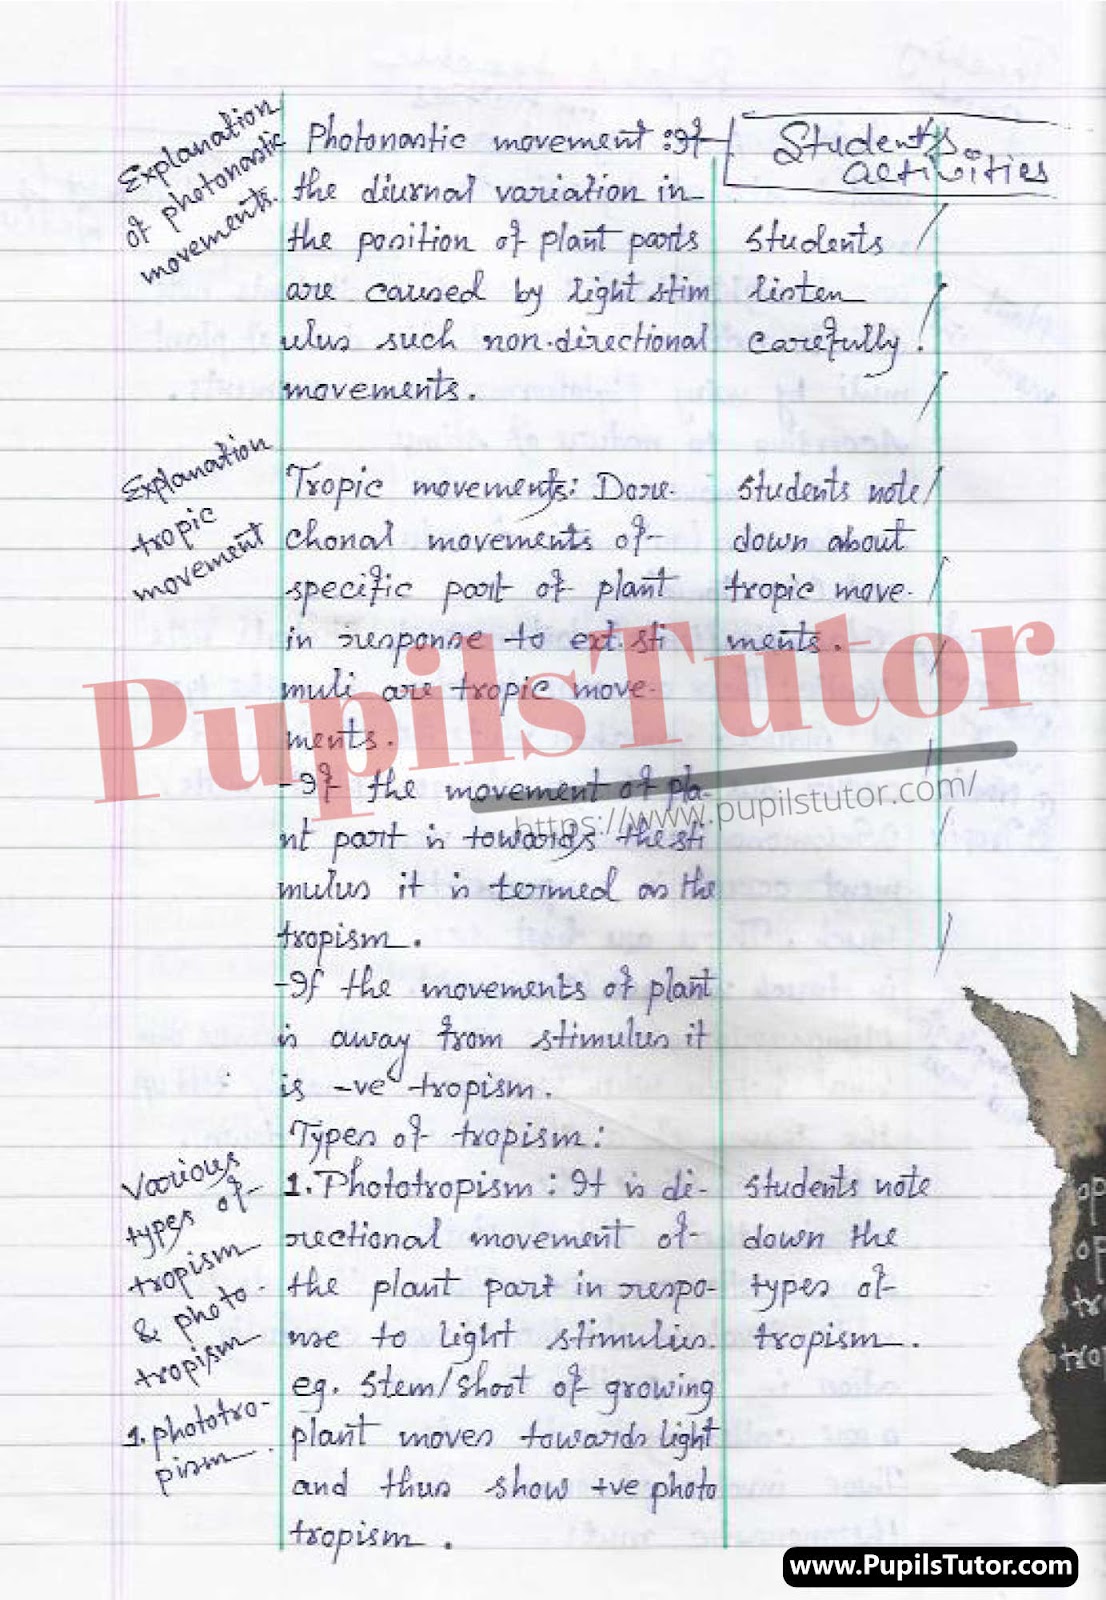 Explanation
of photonastic
movements.
Photonastic movement : If
the diurnal variation in
the position of plant parts
are caused by light stim
ulus such non-directional
movements.
Student's
activities
Students
listen
carefully.
Explanation
tropic
movement
Tropic movements: Dire-
ctional movements of
specific part of plant
in response to ext. sti
muli are tropic move-
ments.
- If the movement of pla-
nt part is towards the sti
mulus it is termed as the
tropism.
- If the movements of plant
is away from stimulus it
is -ve tropism.
Students note
down about
tropic move-
ments.
Types of tropism:
Various
types of
tropism
& photo-
tropism
1. phototro-
pism
1. Phototropism : It is di-
rectional movement of
the plant part in respo-
nse to light stimulus.
eg. Stem/shoot of growing
plant moves towards light
and thus show +ve photo
tropism.
Students note
down the
types of
tropism.
PupilsTutor
https://www.pupilstutor.com/
www.PupilsTutor.com